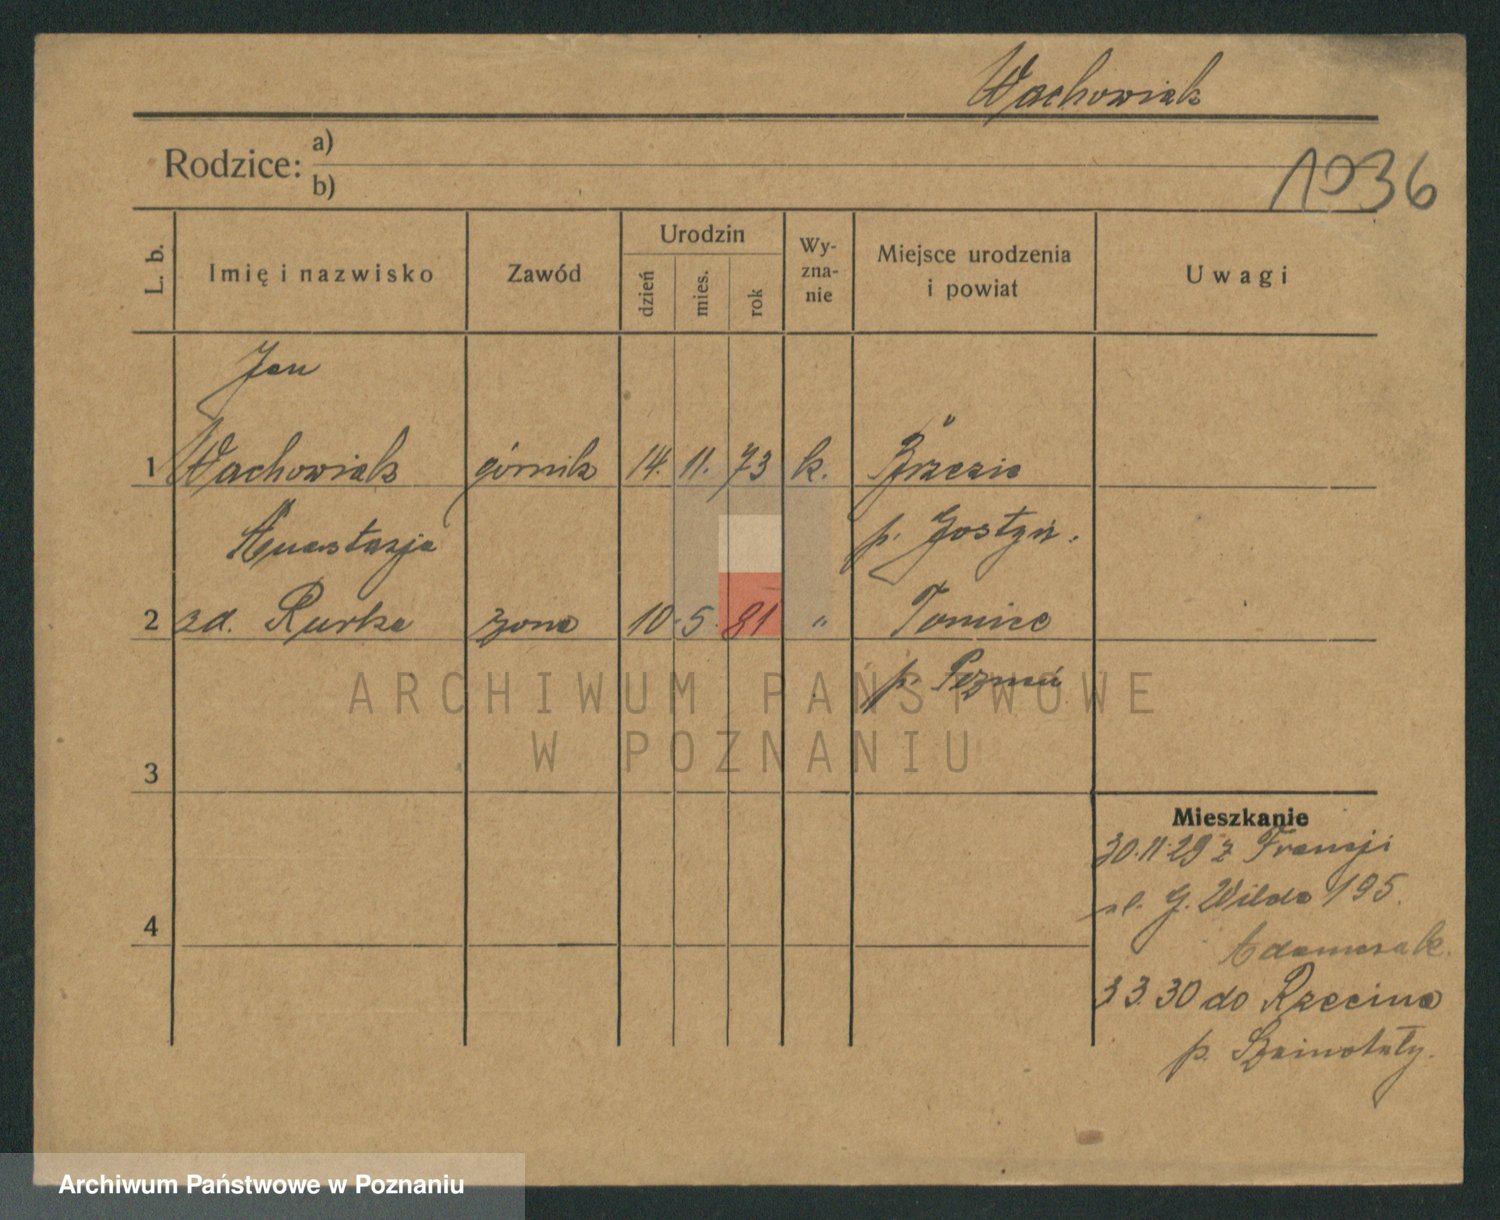 Wachowiak
Rodzice: a)
b)
1936
L. b.
Imię i nazwisko
Zawód
Urodzin
dzień
mies.
rok
Wy-
zna-
nie
Miejsce urodzenia
i powiat
Uwagi
Jan
1 Wachowiak górnik 14. 11. 73 k. Brzezie
Anastazja p. Gostyń.
2 zd. Rurka żona 10. 5. 81 " Tomice
p. Poznań
ARCHIWUM PAŃSTWOWE
W POZNANIU
3
Mieszkanie
30.11.29 z Francji
ul. G. Wilda 195.
4
Adamczak.
3 3.30 do Rzecina
p. Szamotuły.
Archiwum Państwowe w Poznaniu